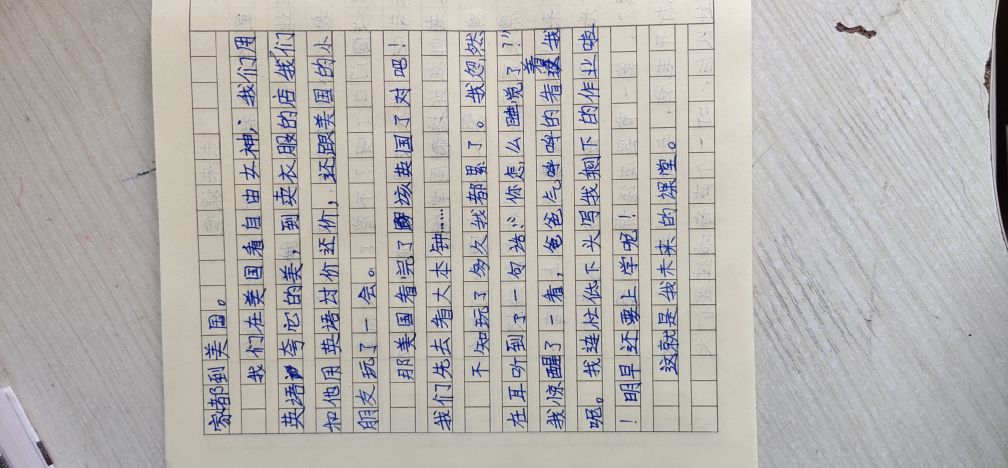 家都到美国。
我们在美国看自由女神，我们用
英语夸它的美，到卖衣服的店我们
和他用英语讨价还价，还跟美国的小
朋友玩了一会。
那美国看完了该英国了对吧！
我们先去看大本钟……
不知玩了多久我都累了。我忽然
在耳听到了一句话：“你怎么睡觉了？”
我惊醒了一看，爸爸气呼呼的看着我
呢。我连忙低下头写我剩下的作业啦
！明早还要上学呢！
这就是我未来的课堂。